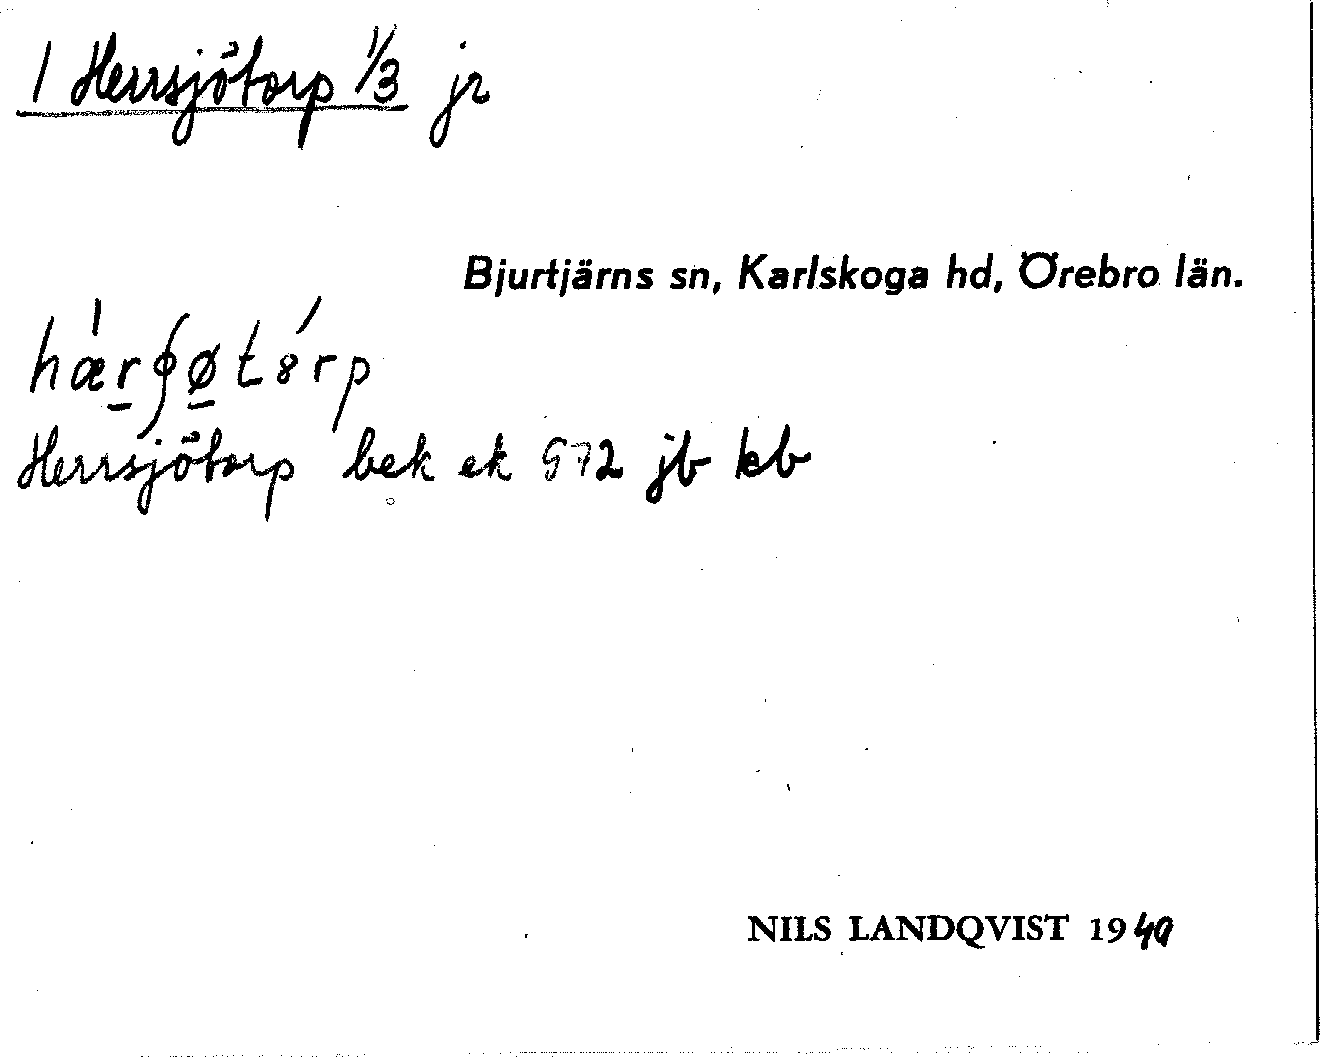 1 Herrsjötorp 1/3 jr
Bjurtjärns sn, Karlskoga hd, Örebro län.
hær∮øtȣrp
Herrsjötorp bek ek G72 jb kb
NILS LANDQVIST 1940